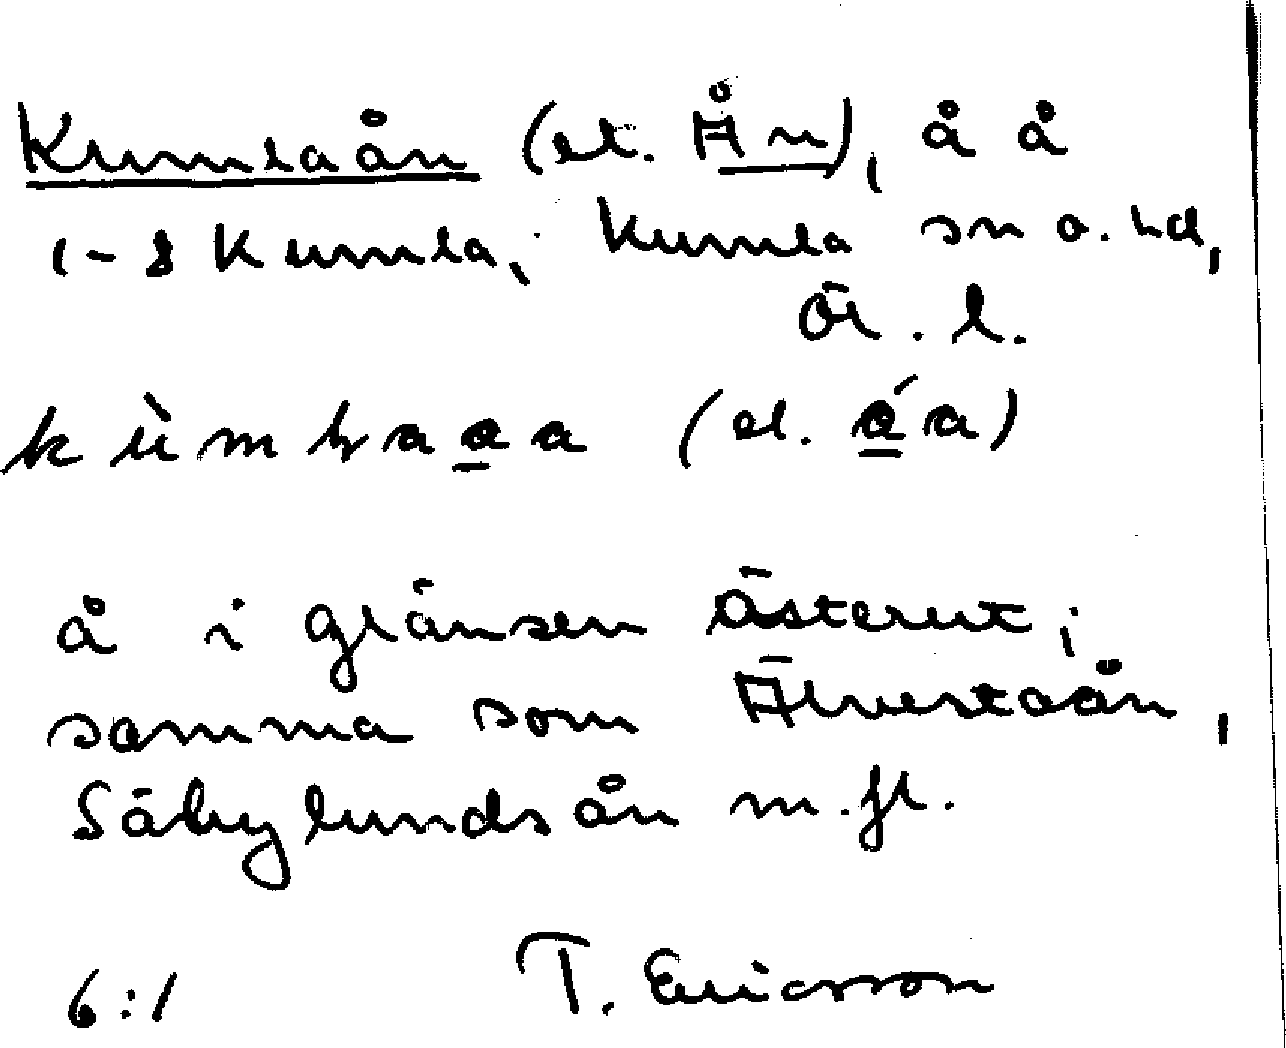 Kumlaån (el. Ån), å å
1-8 Kumla, Kumla sn o. hd,
Ör. l.
(el. áa)
å i gränsen österut;
samma som Älvestaån,
Säbylundsån m.fl.
6:1 T. Ericsson